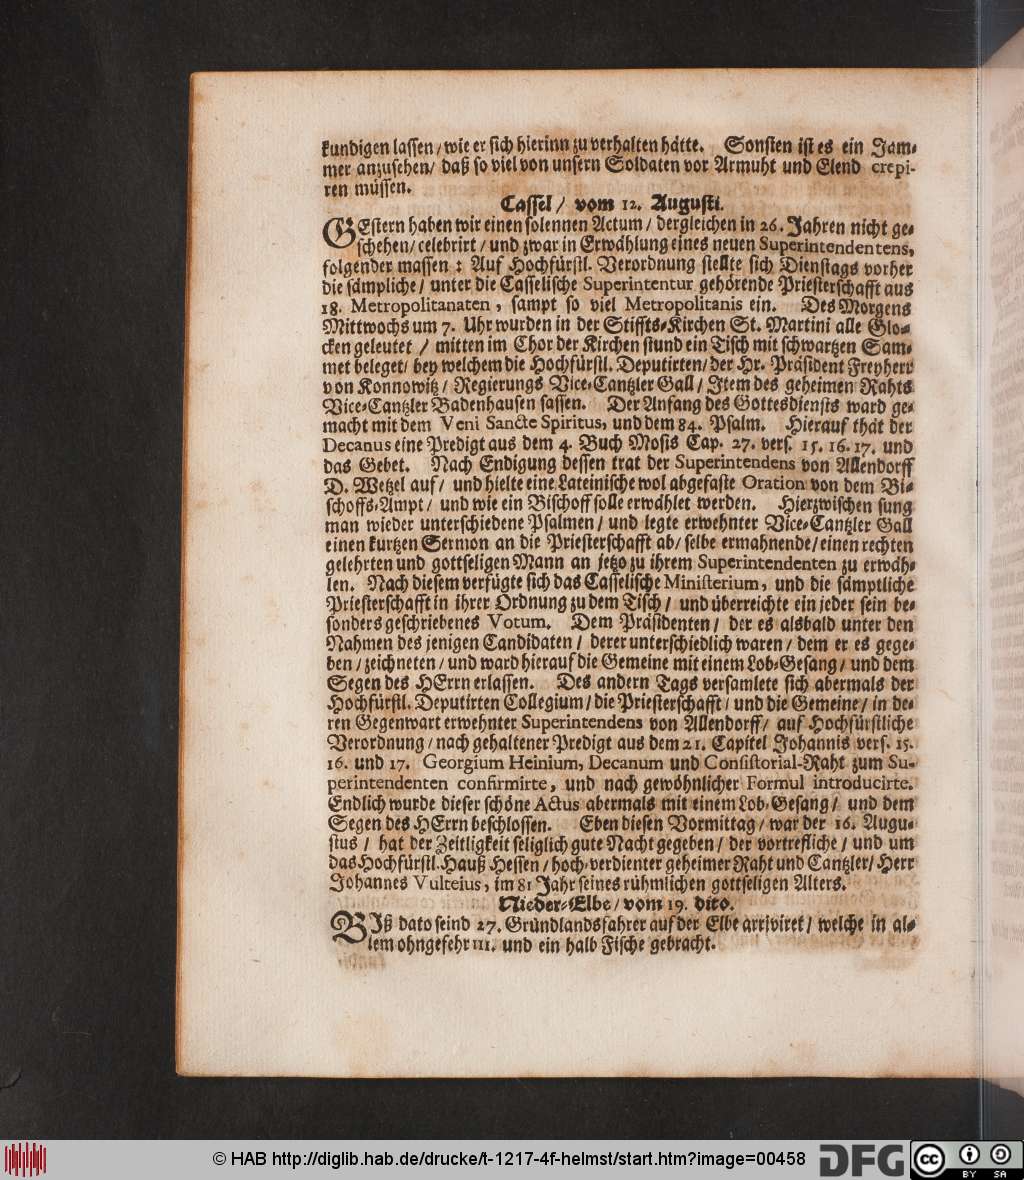 kundigen lassen / wie er sich hierinn zu verhalten hätte. Sonsten ist es ein Jam-
mer anzusehen / daß so viel von unsern Soldaten vor Armuht und Elend crepi-
ren müssen.
Cassel / vom 12. Augusti.
GEstern haben wir einen solennen Actum / dergleichen in 26. Jahren nicht ge-
schehen / celebrirt / und zwar in Erwählung eines neuen Superintendentens,
folgender massen : Auf Hochfürstl. Verordnung stellte sich Dienstags vorher
die sämpliche / unter die Casselische Superintentur gehörende Priesterschafft aus
18. Metropolitanaten, sampt so viel Metropolitanis ein. Des Morgens
Mittwochs um 7. Uhr wurden in der Stiffts-Kirchen St. Martini alle Glo-
cken geleutet / mitten im Chor der Kirchen stund ein Tisch mit schwartzen Sam-
met beleget / bey welchem die Hochfürstl. Deputirten / der Hr. Präsident Freyherr
von Konnowitz / Regierungs Vice-Cantzler Gall / Item des geheimen Rahts
Vice-Cantzler Badenhausen sassen. Der Anfang des Gottesdiensts ward ge-
macht mit dem Veni Sancte Spiritus, und dem 84. Psalm. Hierauf thät der
Decanus eine Predigt aus dem 4. Buch Mosis Cap. 27. vers. 15. 16. 17. und
das Gebet. Nach Endigung dessen trat der Superintendens von Allendorff
D. Wetzel auf / und hielte eine Lateinische wol abgefaste Oration von dem Bi-
schoffs-Ampt / und wie ein Bischoff solle erwählet werden. Hierzwischen sung
man wieder unterschiedene Psalmen / und legte erwehnter Vice-Cantzler Gall
einen kurtzen Sermon an die Priesterschafft ab / selbe ermahnende / einen rechten
gelehrten und gottseligen Mann an jetzo zu ihrem Superintendenten zu erwäh-
len. Nach diesem verfügte sich das Casselische Ministerium, und die sämptliche
Priesterschafft in ihrer Ordnung zu dem Tisch / und überreichte ein jeder sein be-
sonders geschriebenes Votum. Dem Präsidenten / der es alsbald unter den
Nahmen des jenigen Candidaten / derer unterschiedlich waren / dem er es gege-
ben / zeichneten / und ward hierauf die Gemeine mit einem Lob-Gesang / und dem
Segen des HErrn erlassen. Des andern Tags versamlete sich abermals der
Hochfürstl. Deputirten Collegium / die Priesterschafft / und die Gemeine / in de-
ren Gegenwart erwehnter Superintendens von Allendorff / auf Hochfürstliche
Verordnung / nach gehaltener Predigt aus dem 21. Capitel Johannis vers. 15.
16. und 17. Georgium Heinium, Decanum und Consistorial-Raht zum Su-
perintendenten confirmirte, und nach gewöhnlicher Formul introducirte.
Endlich wurde dieser schöne Actus abermals mit einem Lob-Gesang / und dem
Segen des HErrn beschlossen. Eben diesen Vormittag / war der 16. Augu-
stus / hat der Zeitligkeit seliglich gute Nacht gegeben / der vortrefliche / und um
das Hochfürstl. Hauß Hessen / hoch-verdienter geheimer Raht und Cantzler / Herr
Johannes Vulteius, im 81 Jahr seines rühmlichen gottseligen Alters.
Nieder-Elbe / vom 19. dito.
BIß dato seind 27. Gründlandsfahrer auf der Elbe arriviret / welche in al-
lem ohngefehr 111. und ein halb Fische gebracht.
© HAB http://diglib.hab.de/drucke/t-1217-4f-helmst/start.htm?image=00458
DFG
cc
BY SA